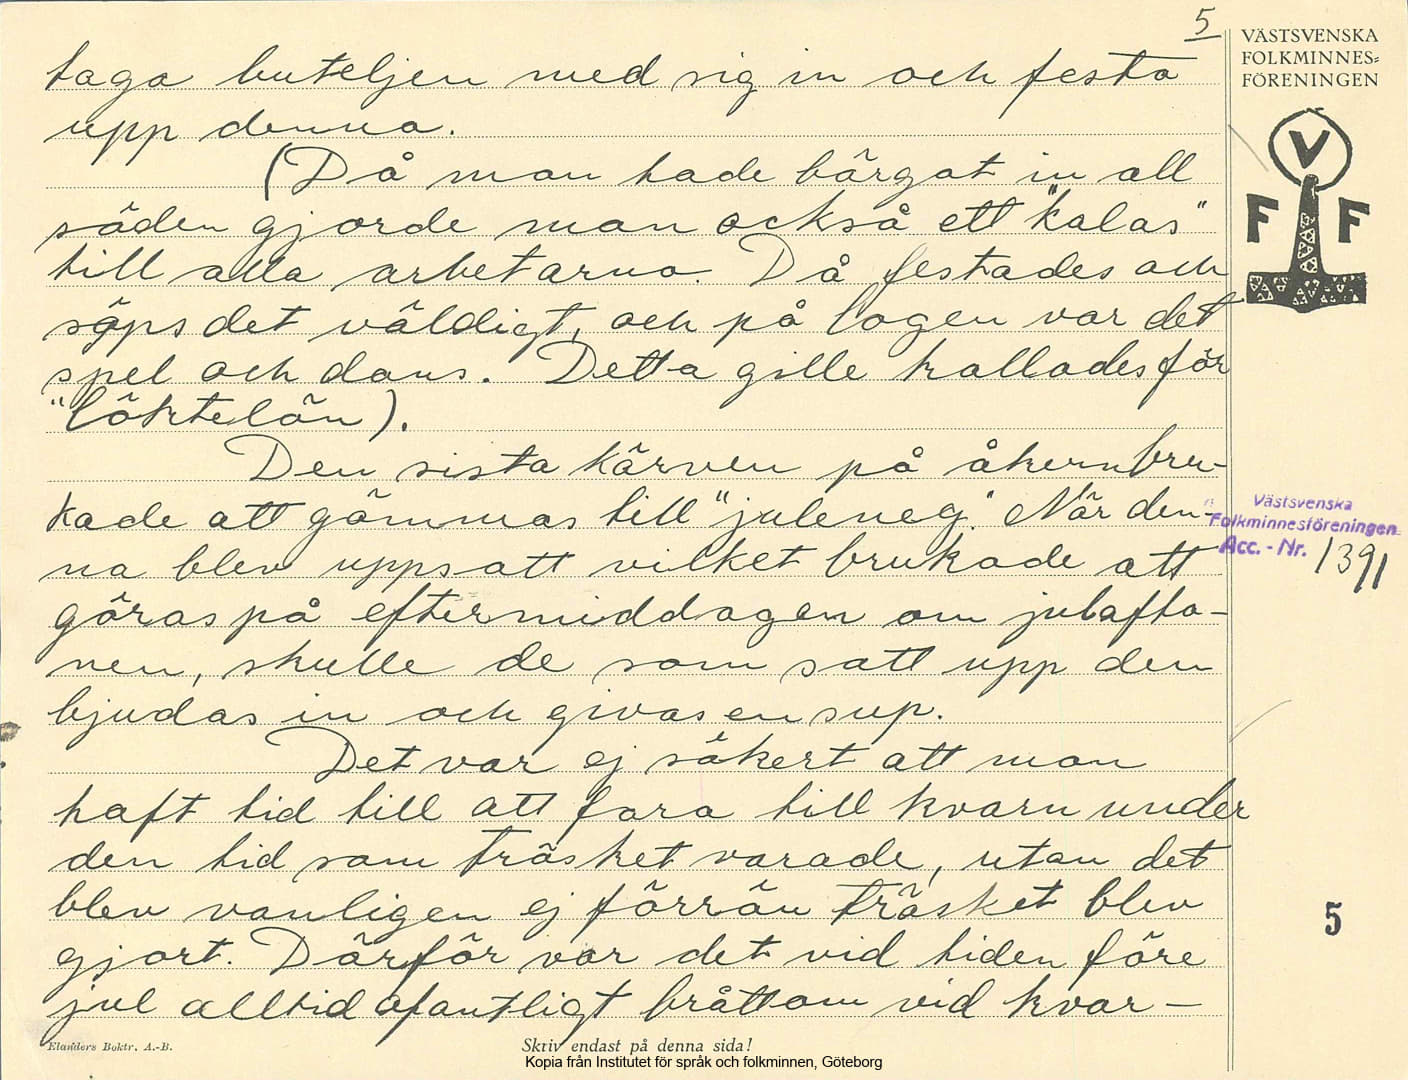 5
VÄSTSVENSKA
FOLKMINNES=
FÖRENINGEN
V
F F
taga buteljen med sig in och festa
upp denna.
(Då man hade bärgat in all
säden gjorde man också ett "kalas"
till alla arbetarna. Då festades och
söps det väldigt, och på logen var det
spel och dans. Detta gille kallades för
"löktelön).
Den sista kärven på åkern bru-
kade att gömmas till "juleneg". När den-
na blev uppsatt vilket brukade att
göras på eftermiddagen om julafto-
nen, skulle de som satt upp den
bjudas in och givas en sup.
Det var ej säkert att man
haft tid till att fara till kvarn under
den tid som träsket varade, utan det
blev vanligen ej förrän träsket blev
gjort. Därför var det vid tiden före
jul alltid ofantligt bråttom vid kvar-
Västsvenska
Folkminnesföreningen
Acc. - Nr. 1391
5
Elanders Boktr. A.-B.
Skriv endast på denna sida!
Kopia från Institutet för språk och folkminnen, Göteborg